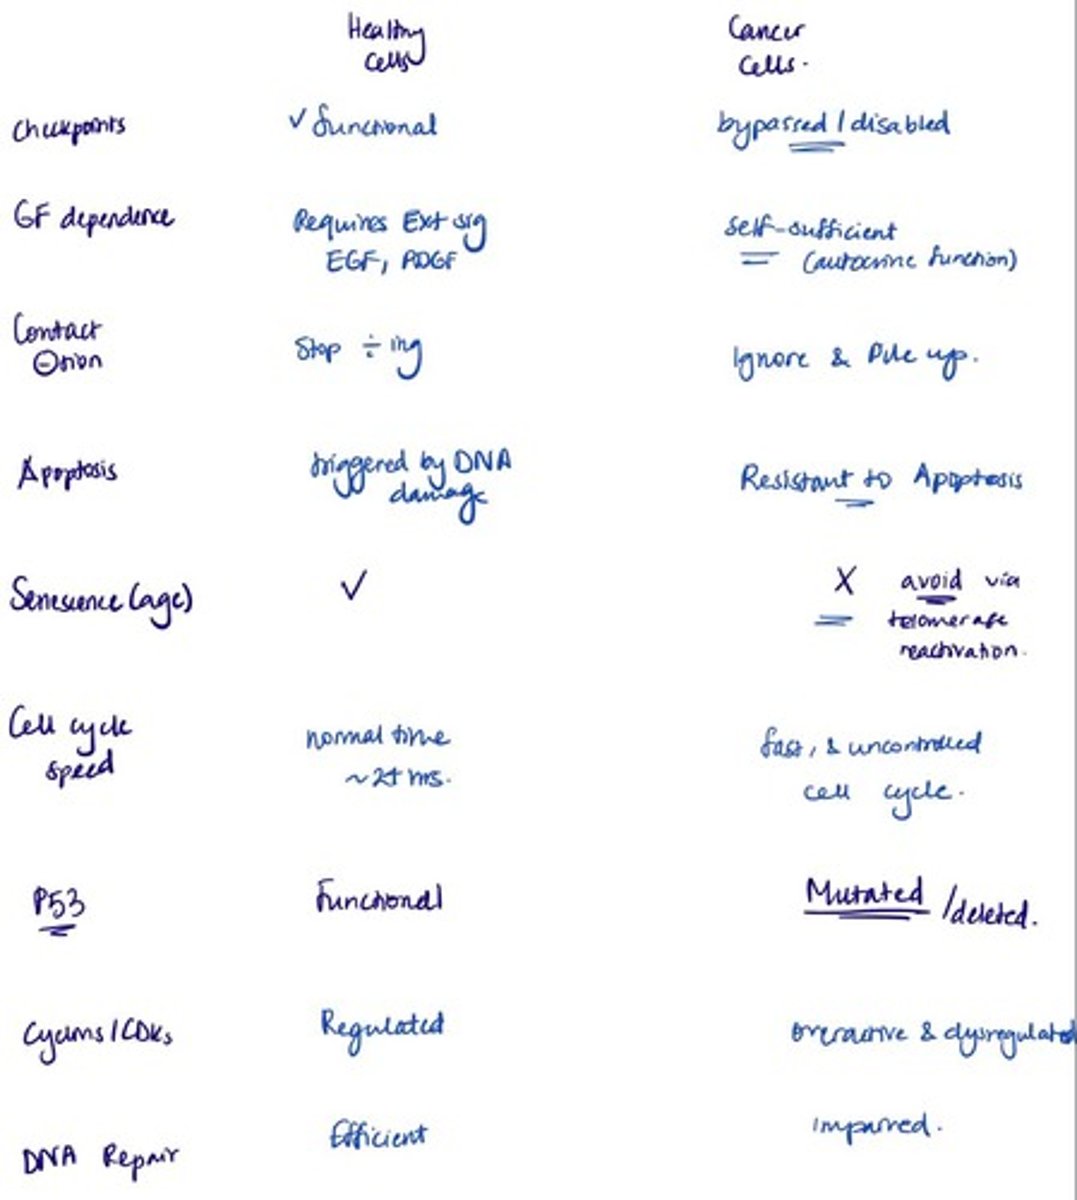 Healthy Cells
Cancer Cells.
Checkpoints ✓ functional bypassed / disabled
GF dependence Requires Ext sig EGF, PDGF self-sufficient (autocrine function)
Contact ⊖tion Stop ÷ing Ignore & Pile up.
Apoptosis triggered by DNA damage Resistant to Apoptosis
Senescence (age) ✓ X avoid via telomerase reactivation.
Cell cycle speed normal time ~24 hrs. fast, & uncontrolled cell cycle.
P53 Functional Mutated / deleted.
Cyclins / CDKs Regulated overactive & dysregulated
DNA Repair Efficient impaired.